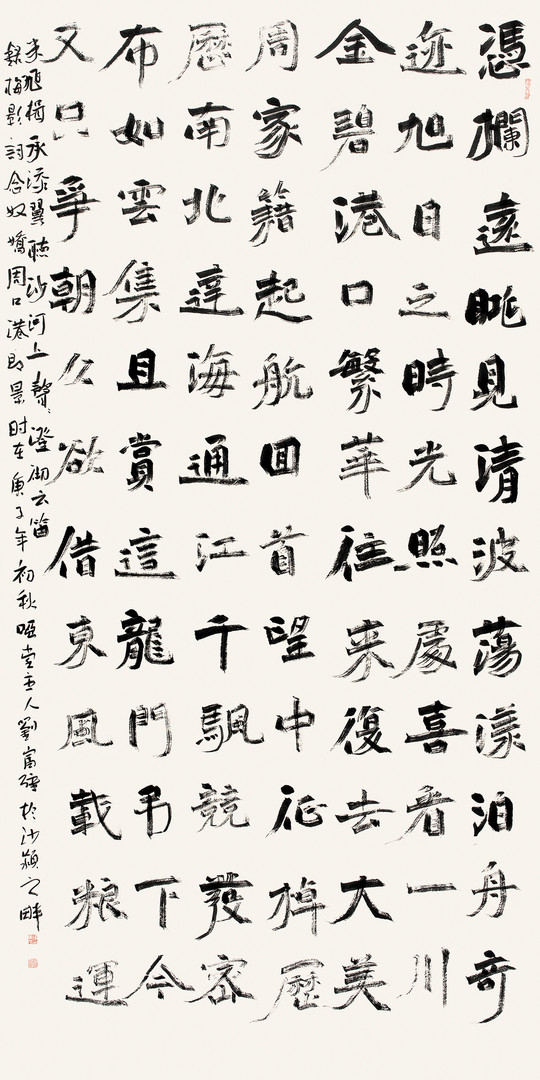 憑欄遠眺見清波蕩漾泊舟奇
迹旭日之時光照處喜看一川
金碧港口繁華往來復去大美
周家籍起航回首望中征棹歷
歷南北達海通江千颿競發密
布如雲集且賞這龍門弔下今
又只爭朝夕欲借東風載粮運
米 添翼聽沙河上聲聲澄澈云笛
錄梅影詞念奴嬌周口港即景时在庚子年初秋啞堂主人劉富强於沙潁之畔